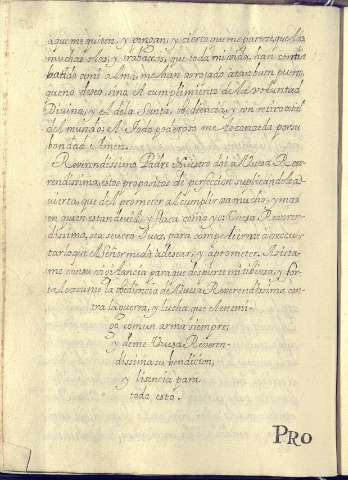 a que me quiten, y rendan, y cierto que me parece, que las
muchas olas, y trabajos, que toda mi vida han comba
batido contra mi, me han arrojado a tan buen puerto
que no deseo, sino el cumplimiento de la voluntad
Divina, y el de la Santa obidiencia, y un retiro total
del mundo; el Todo poderoso me lo conzeda por su
bondad Amen.
Reverendissimo Padre Nuestro doi a Vuesa Reve-
rendissima, estos propositos de perfeccion suplicandole ad-
vierta, que del prometer al cumplir va mucho, y mas
en quien es tan devil, y flaca como yo: Vuesa Reveren-
dissima, sea severo Juez, para compelerme a execu-
tar lo que el Señor me da a desear, y a prometer. Asista-
me con su vigilancia para que despierte mi tibieza, y for-
talezcame la obediencia de Vuesa Reverendissima con-
tra la guerra, y lucha que el enemi-
go comun arma siempre;
y deme Vuesa Reveren-
dissima su bendicion,
y lisencia para
todo esto.
PRO